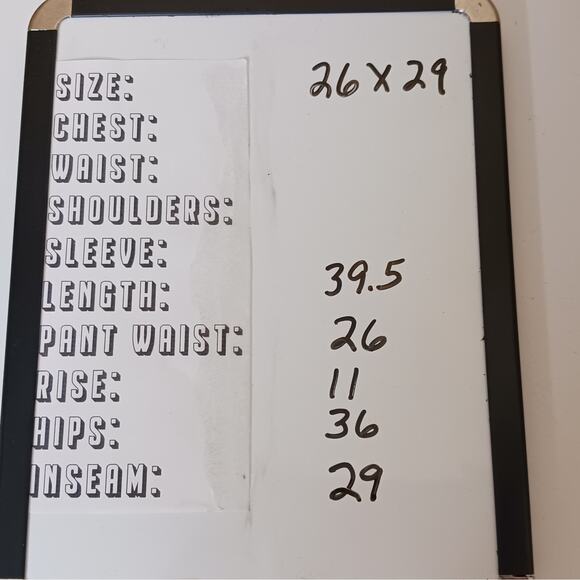 SIZE: 26 X 29
CHEST:
WAIST:
SHOULDERS:
SLEEVE:
LENGTH: 39.5
PANT WAIST: 26
RISE: 11
HIPS: 36
INSEAM: 29